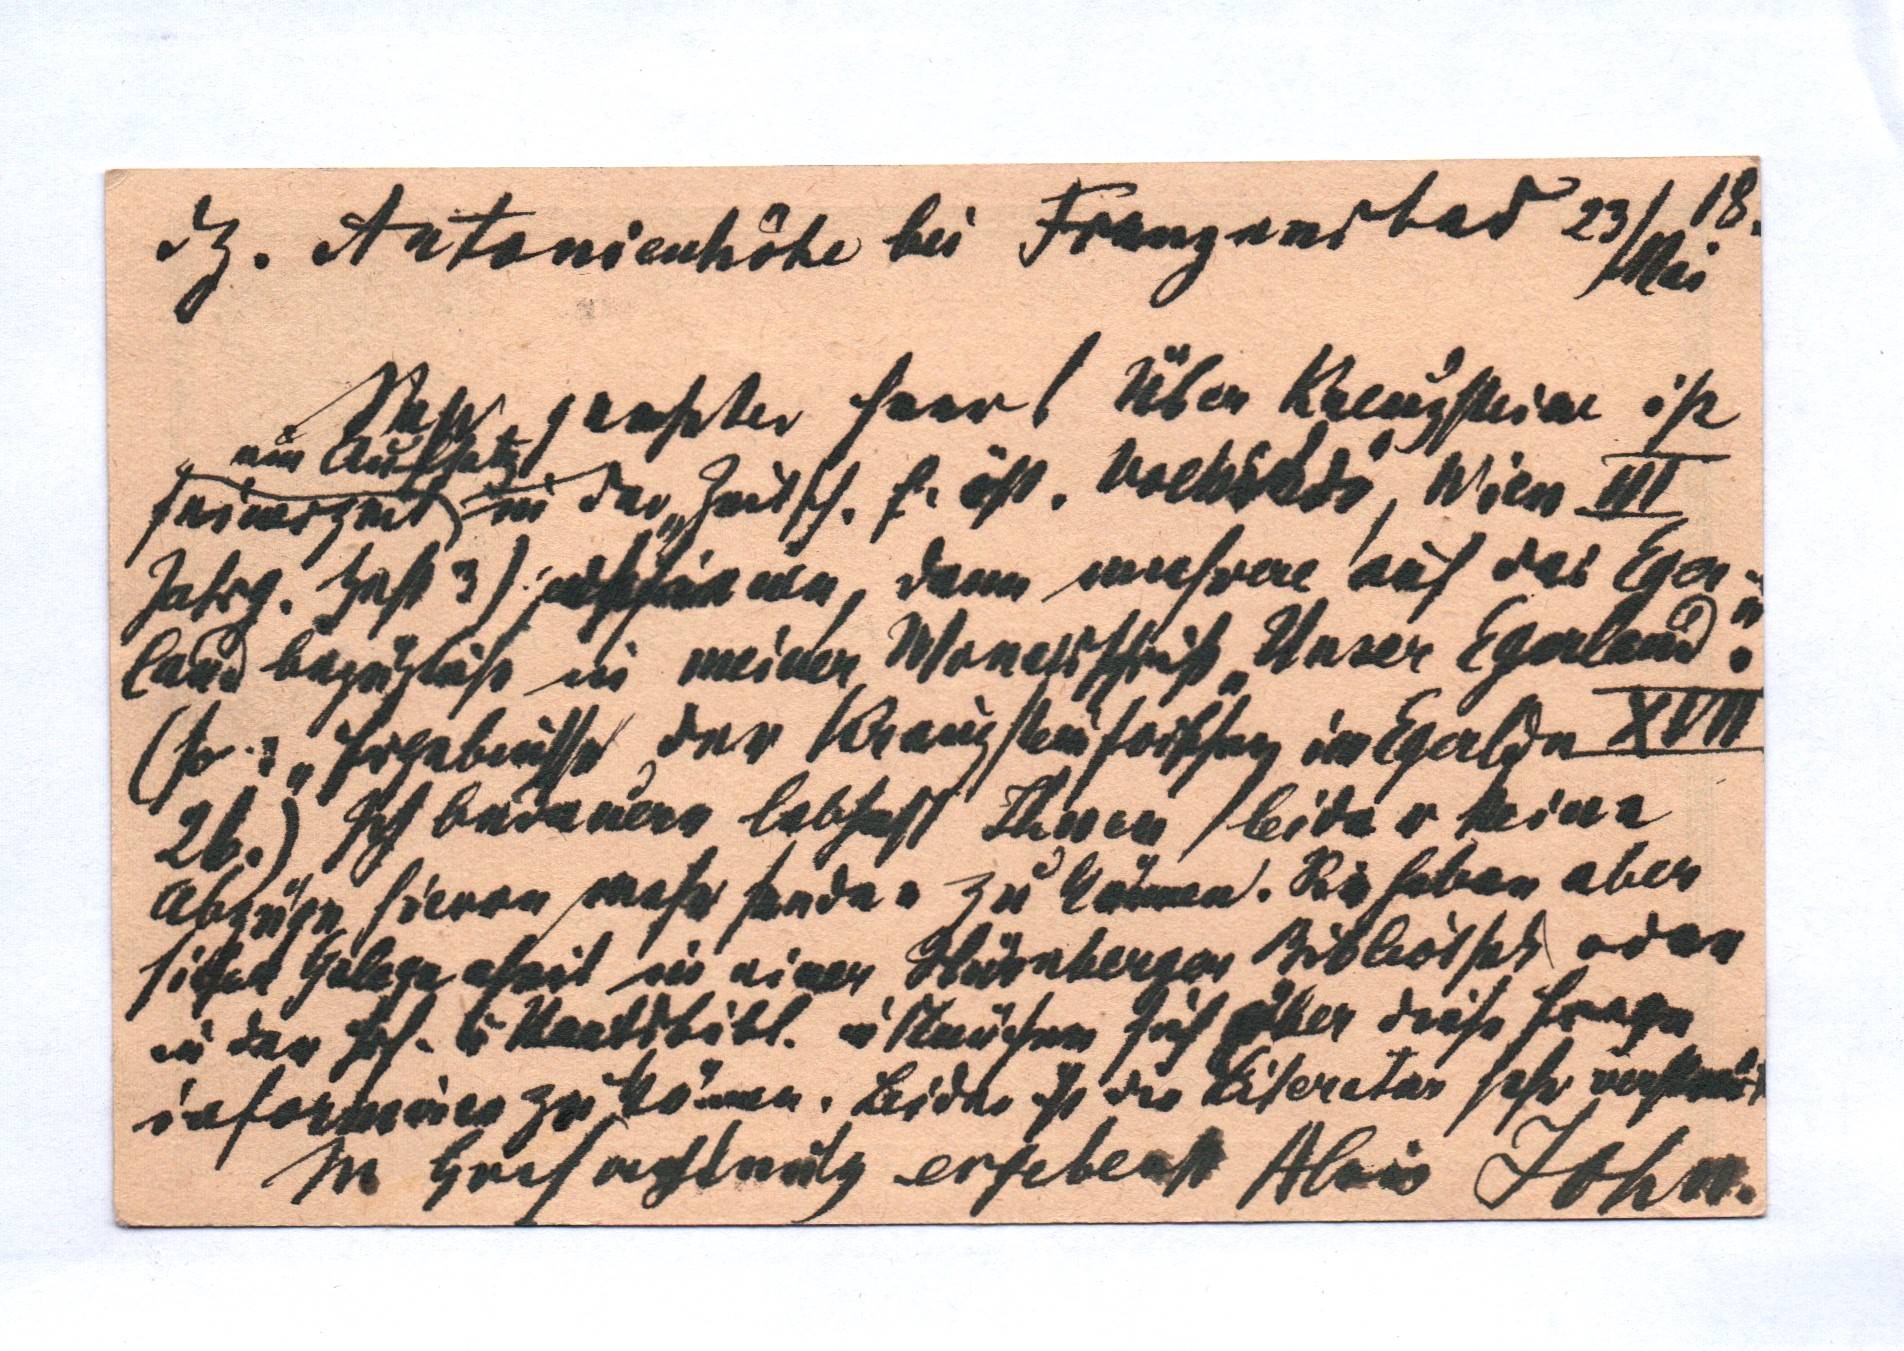 Dz. Antonienhöhe bei Franzensbad 23/Mai 18.
Sehr geehrter Herr! Über Kreuzsteine ist
ein Aufsatz
seinerzeit in der „Zeitsch. f. öst. Volkskde“, Wien III
Jahrg. Heft 3) erschienen, dann mehrere auf das Eger-
land bezüglich in meiner Monatsschrift „Unser Egerland“:
(so: „Ergebnisse der Kreuzsteinforschung im Egerlde XVII
26.) Ich bedauere lebhaft Ihnen leider keine
Abzüge hievon mehr senden zu können. Sie haben aber
sicher Gelegenheit in einer Nürnberger Bibliothek oder
in der Hof- u Staatsbibl. i München sich über diese Frage
informieren zu können. Leider ist die Literatur sehr verstreut
M Hochachtung ergebenst Alois John.